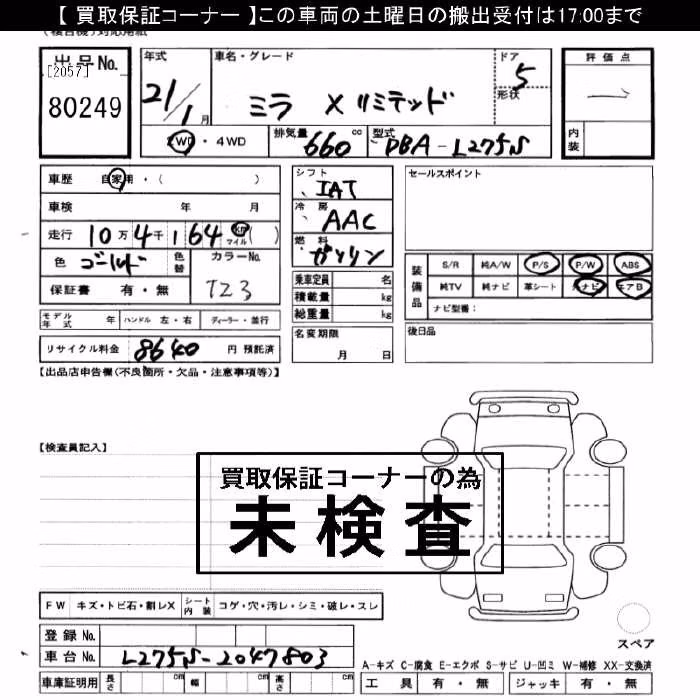 【 買取保証コーナー 】この車両の土曜日の搬出受付は17:00まで
出品No.
[2057]
80249
年式
21/1月
車名・グレード
ミラ Xリミテッド
ドア
5
形状
2WD・4WD
排気量
660 cc
型式
DBA-L275S
評価点
内装
車歴 自家用・( )
車検 年 月
走行 10万4千164 km マイル ( )
色 ゴールド
色替
カラーNo.
T23
保証書 有・無
モデル年式 年 ハンドル 左・右 ディーラー・並行
リサイクル料金 8640 円 預託済
シフト
IAT
冷房
AAC
燃料
ガソリン
乗車定員 名
積載量 kg
総重量 kg
名変期限
月 日
セールスポイント
装備品
S/R 純A/W P/S P/W ABS
純TV 純ナビ 革シート 社ナビ エアB
ナビ型番:
後日品
【出品店申告欄(不良箇所・欠品・注意事項等)】
【検査員記入】
買取保証コーナーの為
未検査
FW キズ・トビ石・割レX シート内装 コゲ・穴・汚レ・シミ・破レ・スレ
登録No.
車台No. L275S-2047803
車庫証明用 長さ cm 幅 cm 高さ cm
スペア
A-キズ C-腐食 E-エクボ S-サビ U-凹ミ W-補修 XX-交換済
工具 有・無 ジャッキ 有・無